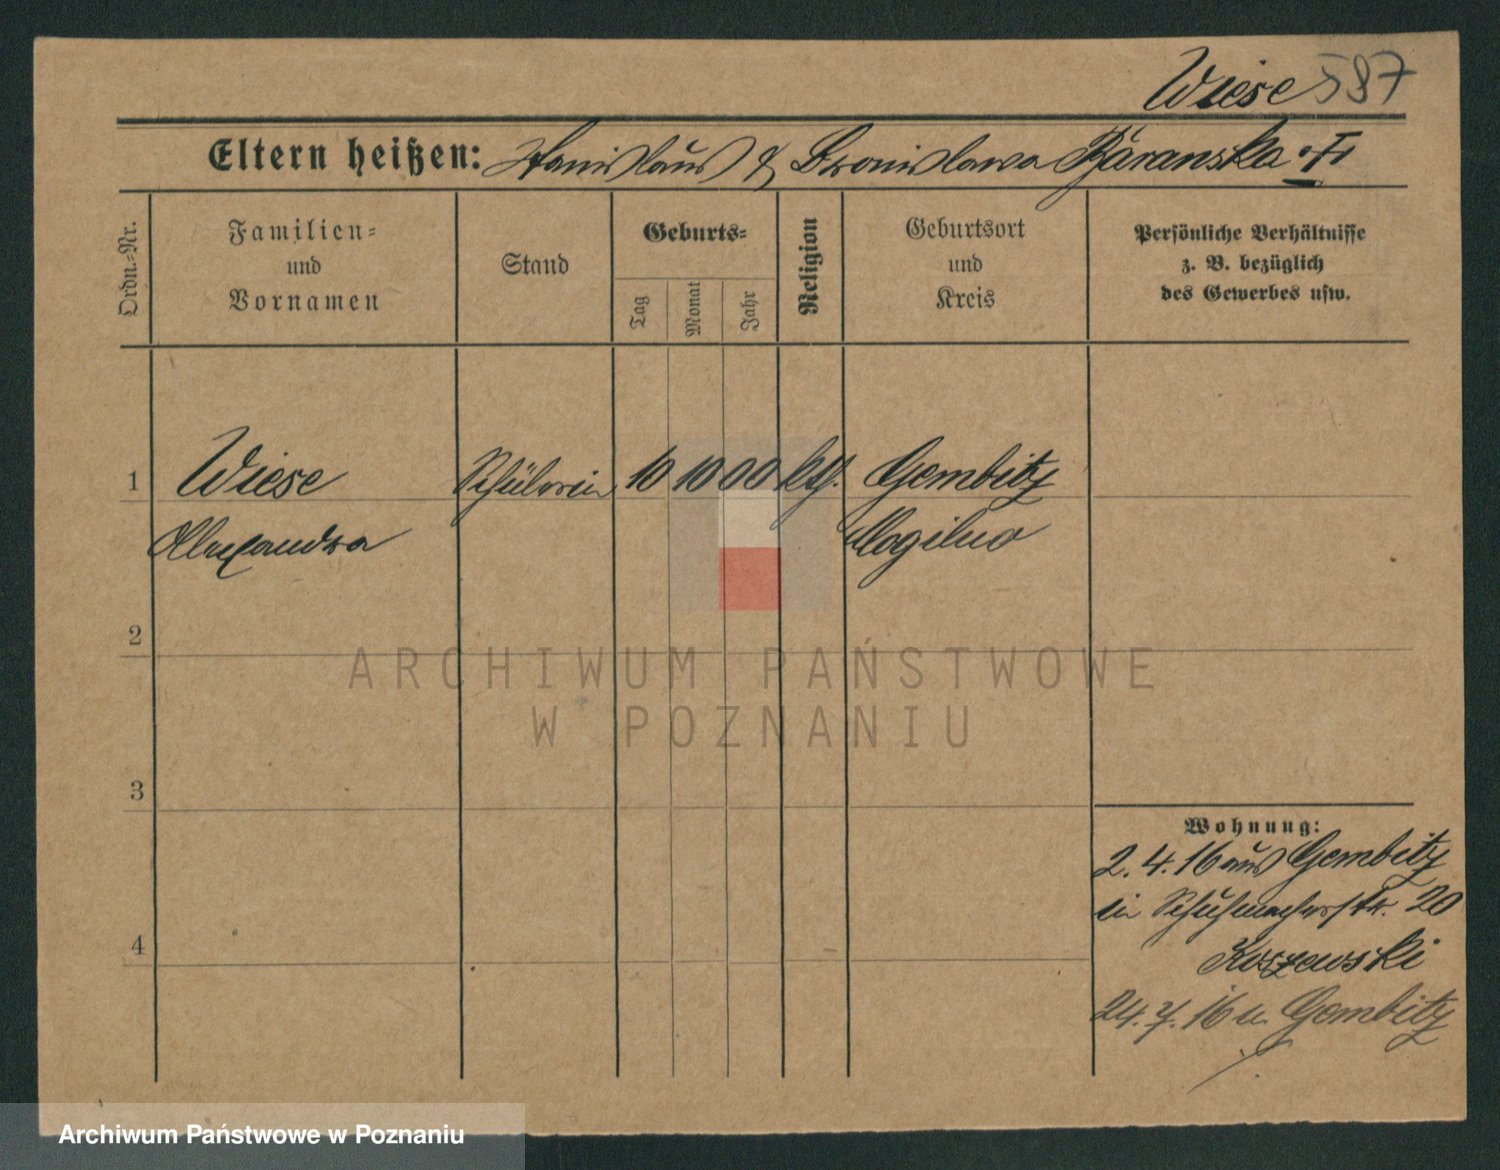 Wiese 587
Eltern heißen: Stanislaus & Bronislawa Baranska
Ordn.=Nr.
Familien=
und
Vornamen
Stand
Geburts=
Tag
Monat
Jahr
Religion
Geburtsort
und
Kreis
Persönliche Verhältnisse
z. B. bezüglich
des Gewerbes usw.
1 Wiese Schülerin 10 10 00 kth. Gembitz
Alexandra Mogilno
2
ARCHIWUM PAŃSTWOWE
W POZNANIU
3
Wohnung:
2.4.16 aus Gembitz
in Schuhmacherstr. 20
Koszewski
4
24.7.16 n. Gembitz
Archiwum Państwowe w Poznaniu